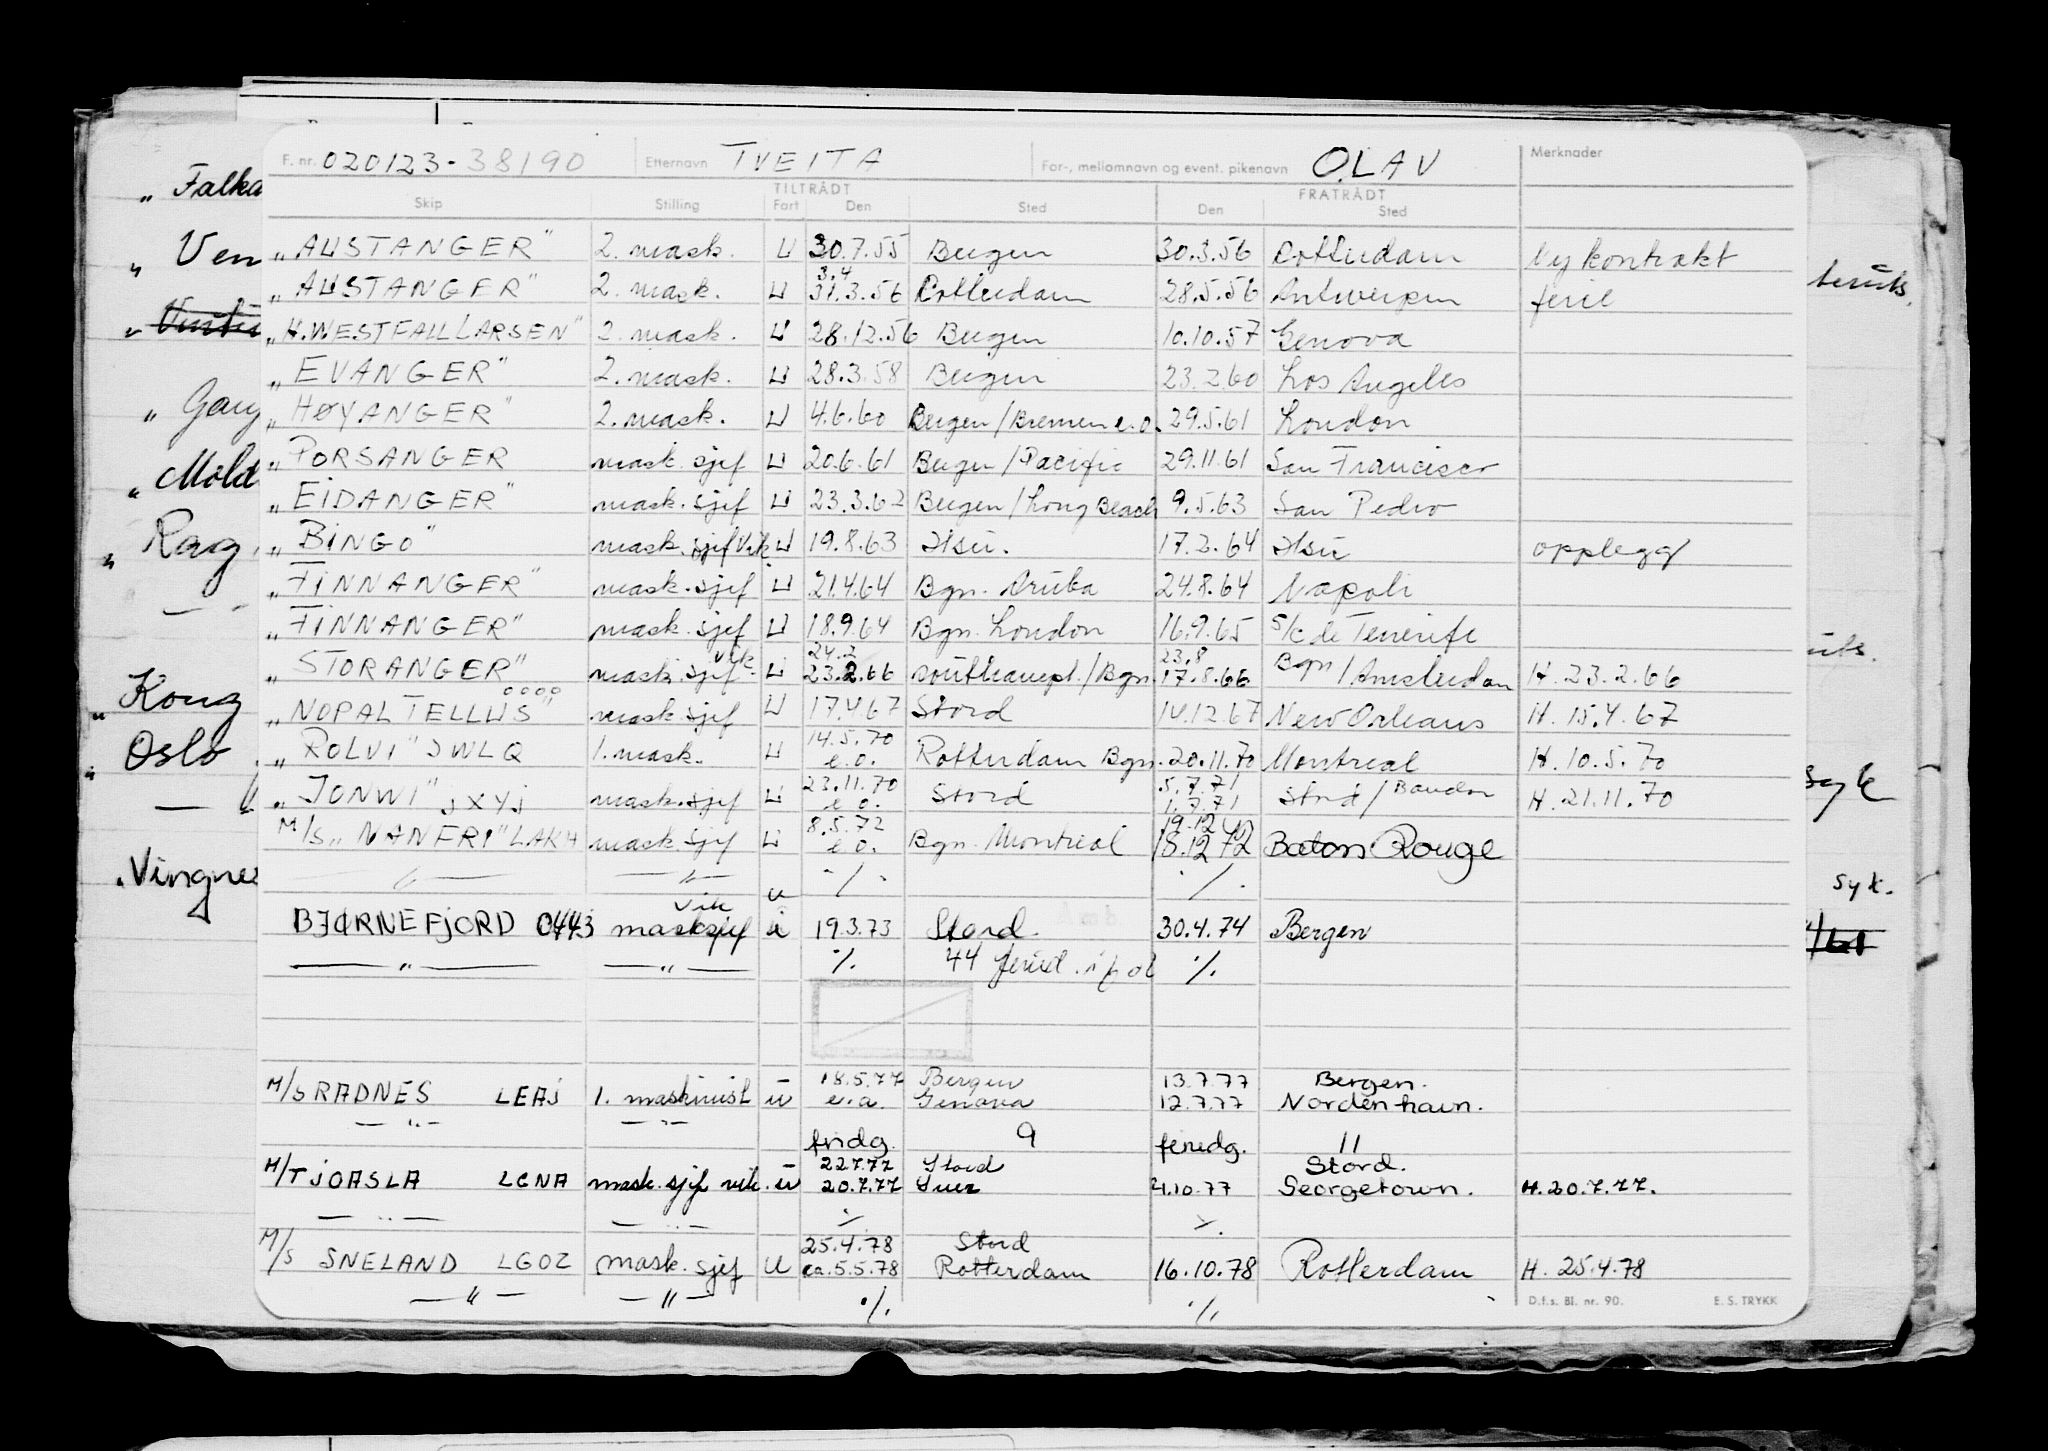 F. nr. 020123-38190 Etternavn TVEITA For-, mellomnavn og event. pikenavn OLAV Merknader
TILTRÅDT FRATRÅDT
Skip Stilling Fart Den Sted Den Sted
„AUSTANGER" 2. mask. U 30.7.55 Bergen 30.3.56 Rotterdam Ny kontrakt
3.4
„AUSTANGER" 2. mask. U 31.3.56 Rotterdam 28.5.56 Antwerpen ferie
„H.WESTFAL LARSEN" 2. mask. U 28.12.56 Bergen 10.10.57 Genova
„EVANGER" 2. mask. U 28.3.58 Bergen 23.2.60 Los Angeles
„HØYANGER" 2. mask. U 4.6.60 Bergen/Bremen e.o. 29.5.61 London
„PORSANGER mask. sjef U 20.6.61 Bergen/Pacific 29.11.61 San Francisco
„EIDANGER" mask. sjef U 23.3.62 Bergen/Long Beach 9.5.63 San Pedro
„BINGO" mask. sjef Vik U 19.8.63 17.2.64 opplegg
„FINNANGER" mask. sjef U 21.4.64 Bgn. Aruba 24.8.64 Napoli
„FINNANGER" mask. sjef U 18.9.64 Bgn. London 16.9.65 S/C de Tenerife
vik 24.2 23.8
„STORANGER" mask. sjef U 23.2.66 Southampt./Bgn. 17.8.66 Bgn/Amsterdam H. 23.2.66
„NOPAL TELLUS" mask. sjef U 17.4.67 Stord 14.12.67 New Orleans H. 15.4.67
14.5.70
„ROLVI" JWLQ 1. mask. U e.o. Rotterdam Bgn. 20.11.70 Montreal H. 10.5.70
23.11.70 5.7.71
„JONWI" JXYJ mask. sjef U e.o. Stord 1.7.71 Stord/Bandar H. 21.11.70
8.5.72 19.12
M/S „NANFRI" LAKH mask. sjef U e.o. Bgn. Montreal 18.12.72 Baton Rouge
— " — — " — ./. ./.
vik u
BJØRNEFJORD masksjef u 19.3.73 Stord. 30.4.74 Bergen
— " — — " — ./. 44 ./.
18.5.77 Bergen 13.7.77 Bergen.
M/S RADNES LEAJ 1. maskinist u e.o. Genova 12.7.77 Nordenham.
— " — — " —
fridg. 9 feriedg. 11
22.7.77 Stord Stord.
M/T JOASLA LGNA mask. sjef vik. u 20.7.77 4.10.77 Georgetown. H. 20.7.77.
— " — — " — ./. ./.
25.4.78 Stord
M/S SNELAND LGOZ mask. sjef U ca. 5.5.78 Rotterdam 16.10.78 Rotterdam H. 25.4.78
— " — — " — ./. ./.
D.f.s. Bl. nr. 90. E. S. TRYKK
„ Falka
„ Ven
„ Gau
„ Mold
„ Rag
„ Kong
Oslo
„Vingnes
syk
syk.